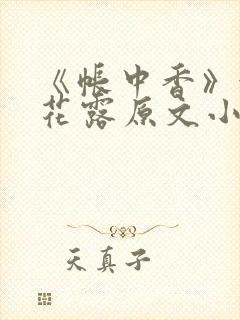 《帐中香》
花露原文小
天真子